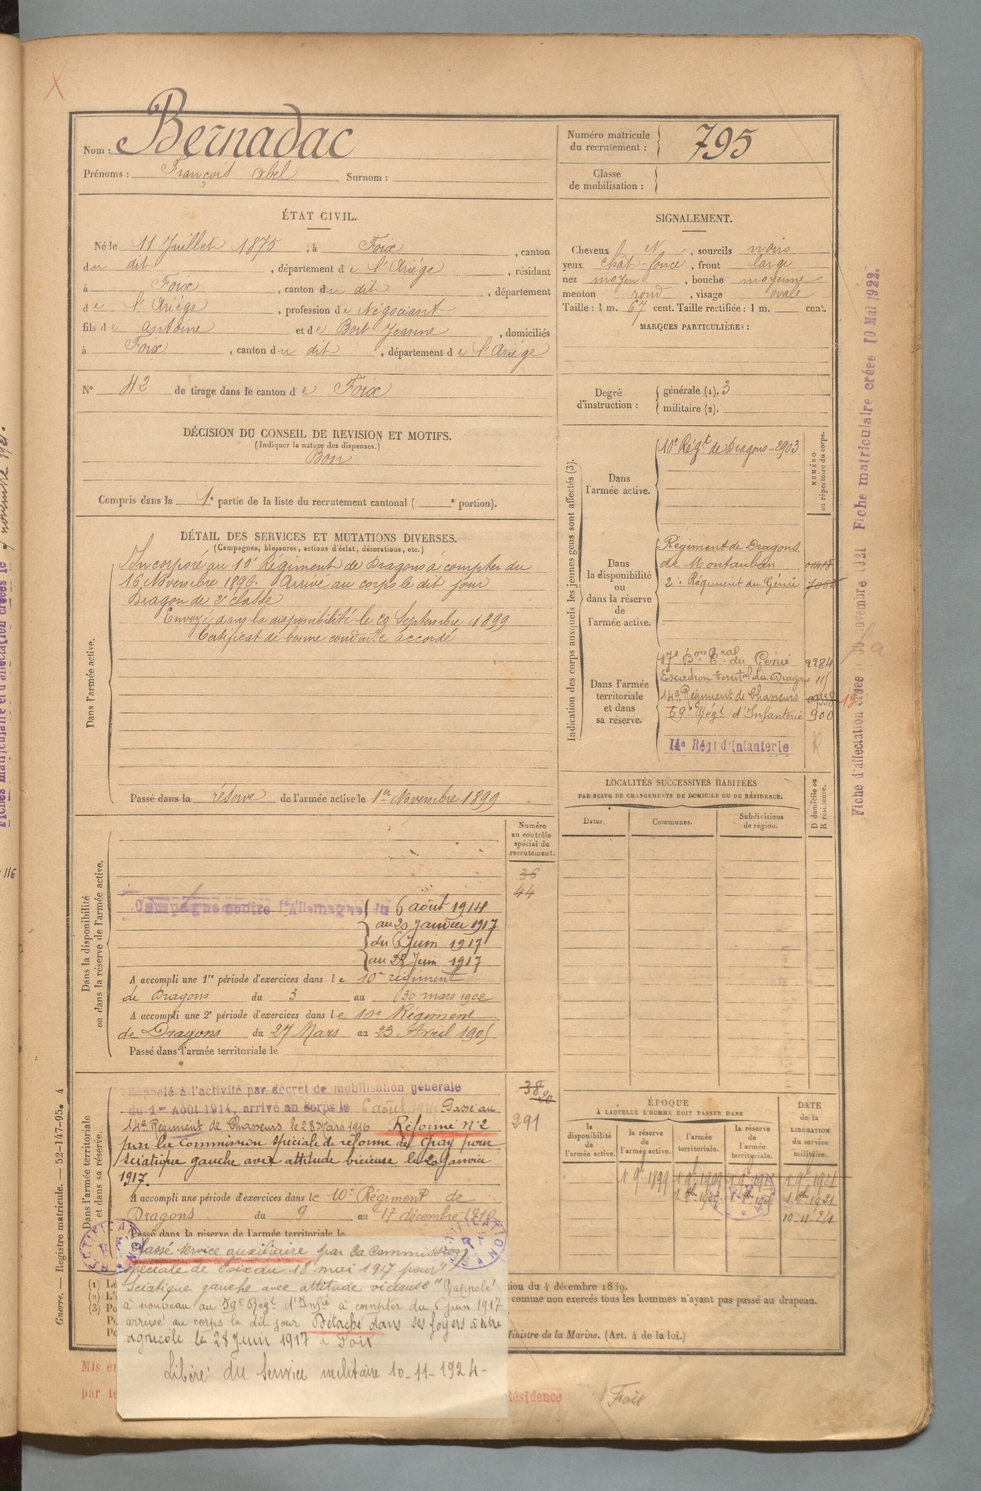 Nom : Bernadac
Prénoms : François Abel Surnom :
Numéro matricule du recrutement : 795
Classe de mobilisation :
ÉTAT CIVIL.
Né le 11 Juillet 1875, à Foix, canton
du dit, département de l'Ariège, résidant
à Foix, canton du dit, département
de l'Ariège, profession de Négociant
fils de Antoine et de Bort Jeanne, domiciliés
à Foix, canton du dit, département de l'Ariège
N° 42 de tirage dans le canton de Foix
SIGNALEMENT.
Cheveux N, sourcils noirs
yeux chât. foncé, front large
nez moyen, bouche moyenne
menton rond, visage ovale
Taille : 1 m. 67 cent. Taille rectifiée : 1 m. cent.
MARQUES PARTICULIÈRES :
Degré d'instruction : générale (1). 3
militaire (2).
DÉCISION DU CONSEIL DE REVISION ET MOTIFS.
(Indiquer la nature des dispenses.)
Bon
Compris dans la 1e partie de la liste du recrutement cantonal ( e portion).
DÉTAIL DES SERVICES ET MUTATIONS DIVERSES.
(Campagnes, blessures, actions d'éclat, décorations, etc.)
Dans l'armée active.
Incorporé au 10e Régiment de Dragons à compter du
16 Novembre 1896. Arrivé au corps le dit jour
Dragon de 2e classe
Envoyé dans la disponibilité le 29 Septembre 1899
Certificat de bonne conduite accordé
Passé dans la réserve de l'armée active le 1er Novembre 1899
Indication des corps auxquels les jeunes gens sont affectés (3).
NUMÉRO au répertoire du corps.
Dans l'armée active.
10e Régt de Dragons - 2903
Dans la disponibilité ou dans la réserve de l'armée active.
Régiment de Dragons
de Montauban
2e Régiment du Génie
Dans l'armée territoriale et dans sa réserve.
17e Bon Tral du Génie 9284
Escadron territal de Dragons 115
14e Régiment de Chasseurs
59e Régt d'Infanterie 900
14e Régt d'Infanterie
LOCALITÉS SUCCESSIVES HABITÉES
PAR SUITE DE CHANGEMENTS DE DOMICILE OU DE RÉSIDENCE.
Dates. Communes. Subdivisions de région. D domicile ou R résidence.
Dans la disponibilité ou dans la réserve de l'armée active.
Numéro au contrôle spécial du recrutement.
36
44
Campagne contre l'Allemagne du 6 août 1914
au 20 janvier 1917
du 6 Juin 1917
au 28 Juin 1917
A accompli une 1re période d'exercices dans le 10e régiment
de Dragons du 3 au 30 mars 1902
A accompli une 2e période d'exercices dans le 10e Régiment
de Dragons du 27 Mars au 23 Avril 1905
Passé dans l'armée territoriale le
Dans l'armée territoriale et dans sa réserve.
291
Rappelé à l'activité par décret de mobilisation générale
du 1er Août 1914, arrivé au corps le 6 août 1914 Passé au
14e Régiment de Chasseurs le 28 Mars 1916 Réformé n°2
par la Commission spéciale de réforme de Gray pour
sciatique gauche avec attitude vicieuse le 20 Janvier
1917.
A accompli une période d'exercices dans le 10e Régiment de
Dragons du 9 au 17 décembre 1910
Passé dans la réserve de l'armée territoriale le
Classé service auxiliaire par la Commission
spéciale de Foix du 18 mai 1917 pour "
Sciatique gauche avec attitude vicieuse" Rappelé
à nouveau au 59e Régt d'Infie à compter du 6 juin 1917
arrivé au corps le dit jour Détaché dans ses foyers à titre
agricole le 28 Juin 1917 à Foix
Libéré du service militaire 10-11-1924-
ÉPOQUE
À LAQUELLE L'HOMME DOIT PASSER DANS
la disponibilité de l'armée active.
la réserve de l'armée active.
l'armée territoriale.
la réserve de l'armée territoriale.
DATE de la LIBÉRATION du service militaire.
10-11-24
tion du 4 décembre 1889.
comme non exercés tous les hommes n'ayant pas passé au drapeau.
Ministre de la Marine. (Art. 4 de la loi.)
Mis en
par le
Résidence Foix
Guerre. — Registre matricule. — 52-147-95. 4
Fiche matriculaire créée 10 Mai 1922.
116